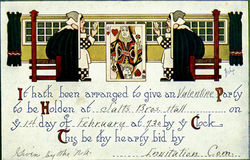 It hath been arranged to give an Valentine Party
to be Holden at Blatts Bros. Hall on
ye 14 day of February at 7:30 by ye Clock
This be thy hearty bid by
Given by the Invitation Com.